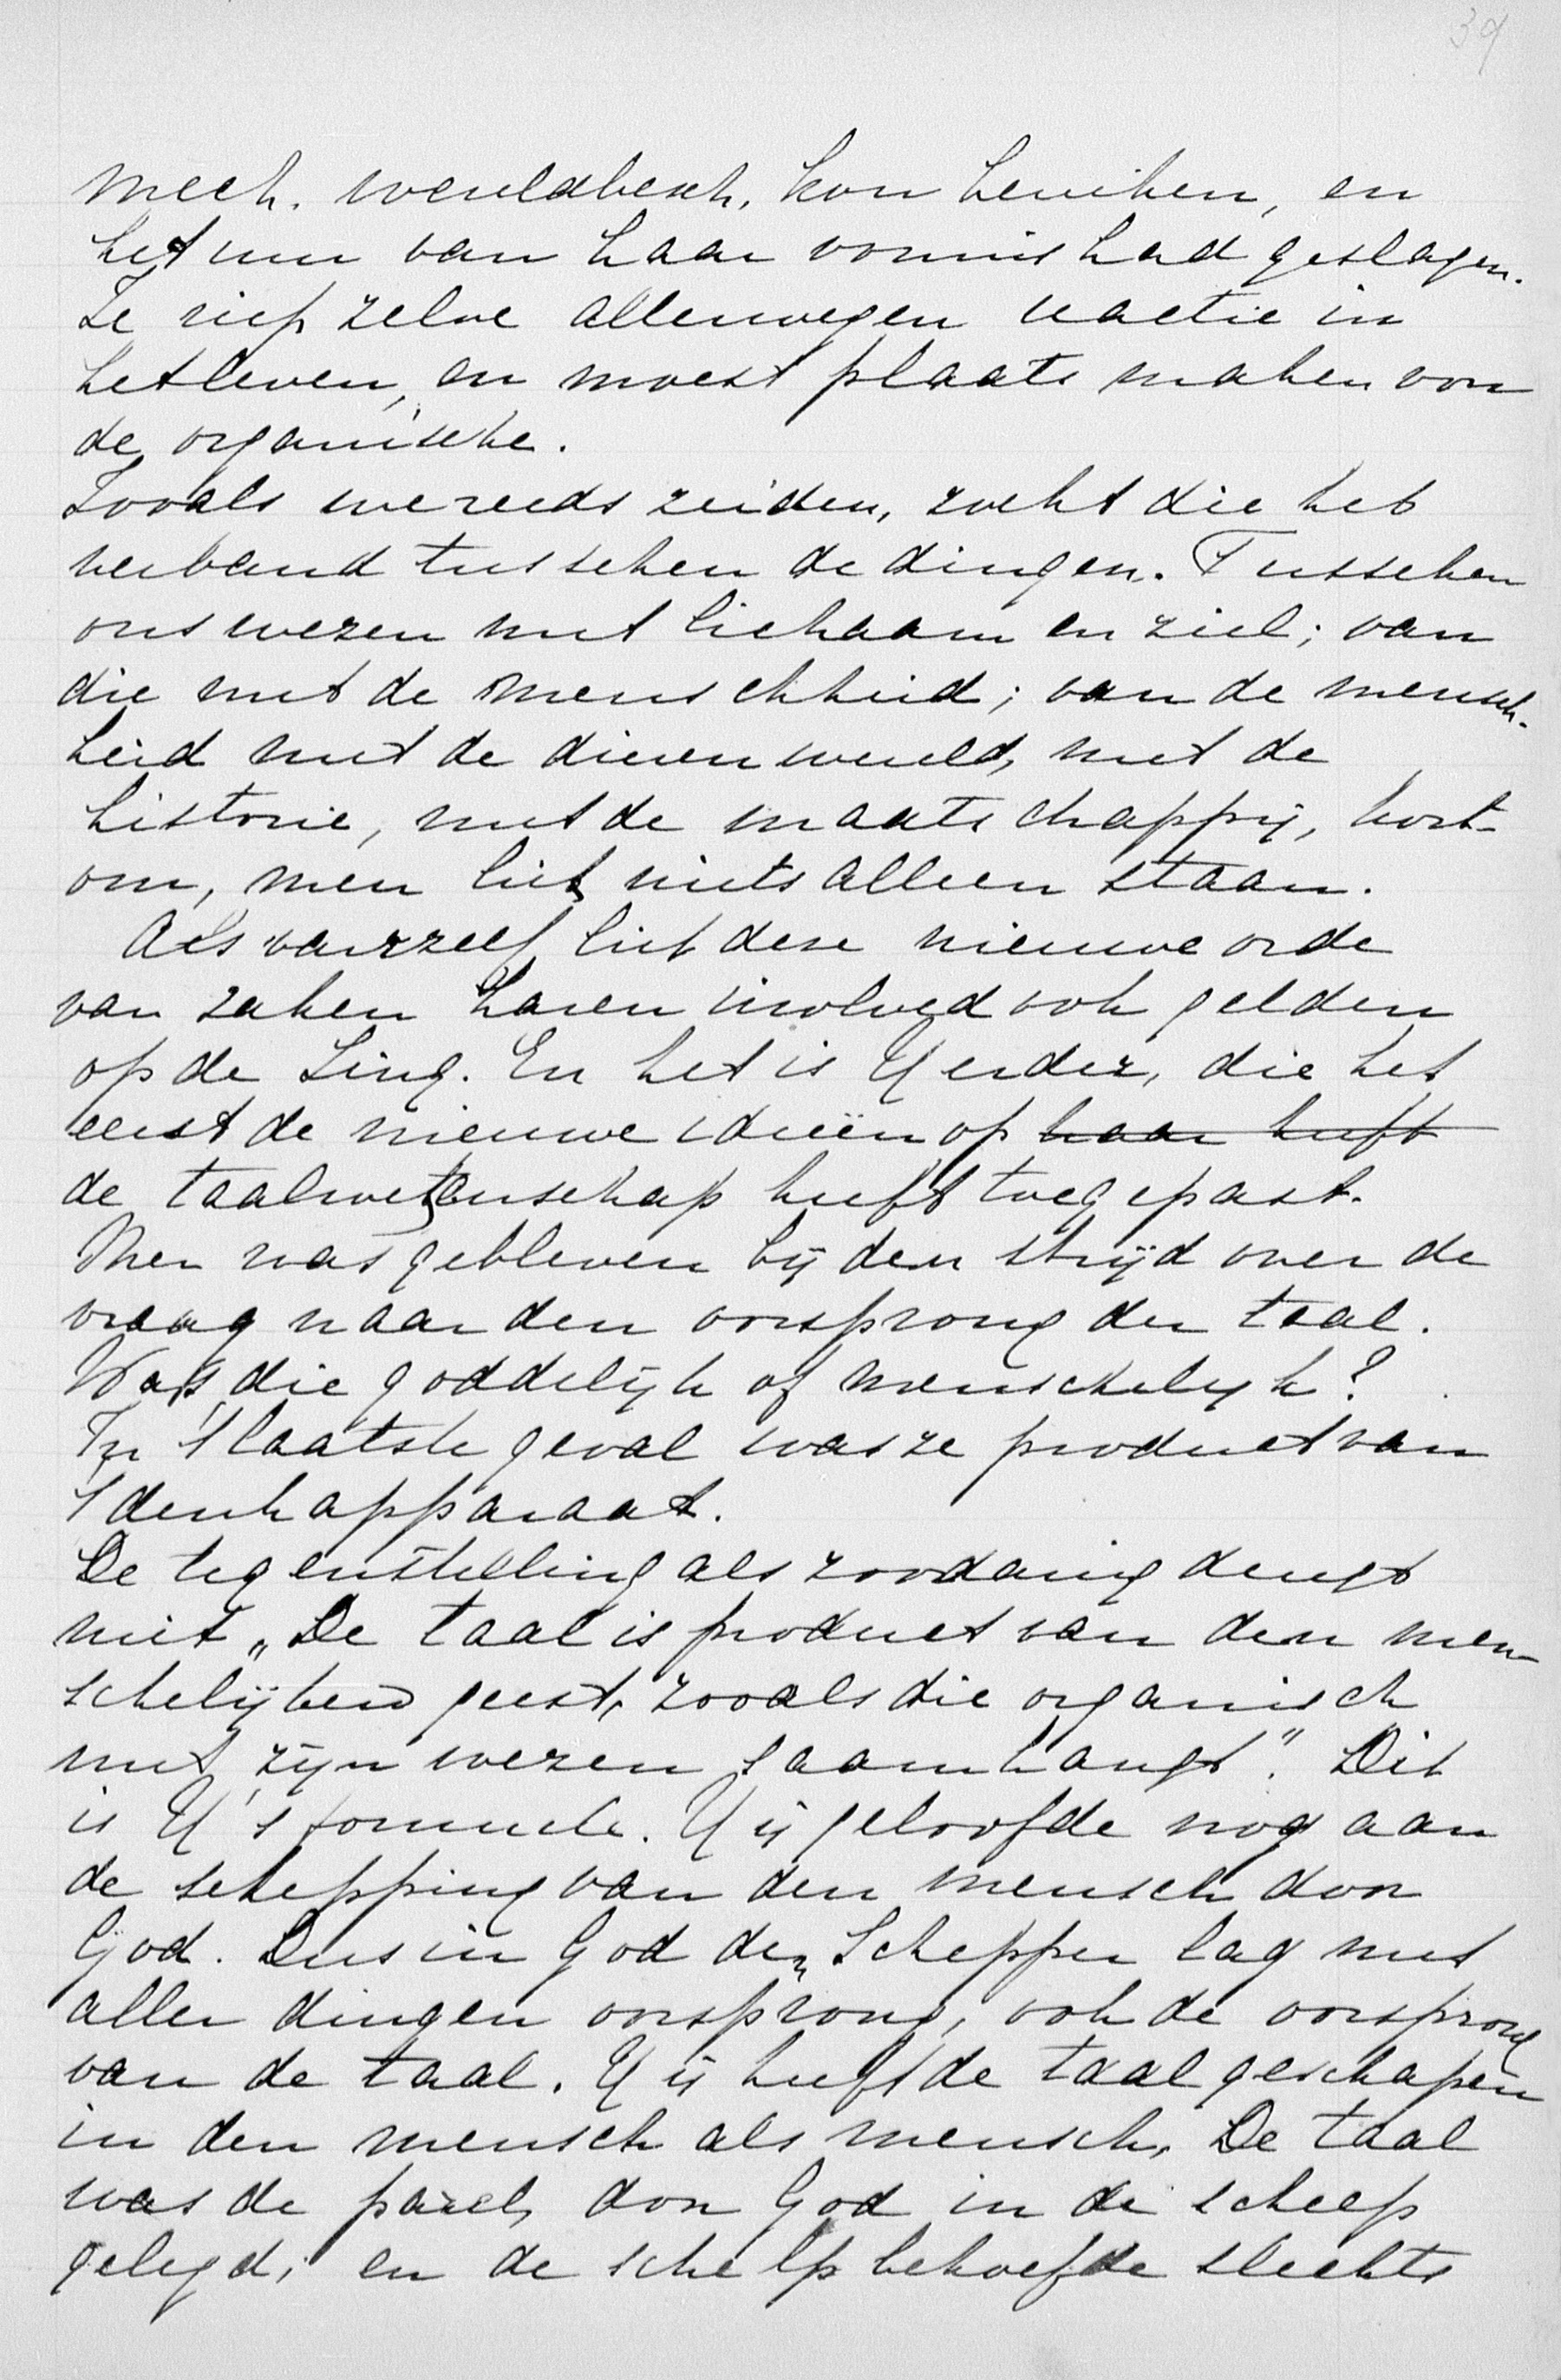 39
mech. wereldbesch. kon bereiken, en
het uur van haar vonnis had geslagen.
Ze riep zelve allerwegen reactie in
het leven, en moest plaats maken voor
de organische.
Zooals we reeds zeiden, zocht die het
verband tusschen de dingen. Tusschen
ons wezen met lichaam en ziel; van
die met de menschheid; van de mensch-
heid met de dierenwereld, met de
historie, met de maatschappij, kort-
om, men liet niets alleen staan.
Als vanzelf liet deze nieuwe orde
van zaken haren invloed ook gelden
op de Ling. En het is Herder, die het
eerst de nieuwe ideeën op haar heeft
de taalwetenschap heeft toegepast.
Men was gebleven bij den strijd over de
vraag naar den oorsprong der taal.
Was die goddelijk of menschelijk?
In 't laatste geval was ze product van
't denkapparaat.
De tegenstelling als zoodanig deugt
niet „De taal is product van den men-
schelijken geest, zooals die organisch
met zijn wezen saamhangt". Dit
is H's formule. Hij geloofde nog aan
de schepping van den mensch door
God. Dus in God den Schepper lag met
aller dingen oorsprong, ook de oorsprong
van de taal. Hij heeft de taal geschapen
in den mensch als mensch. De taal
was de parel, door God in de schelp
gelegd, en de schelp behoefde slechts